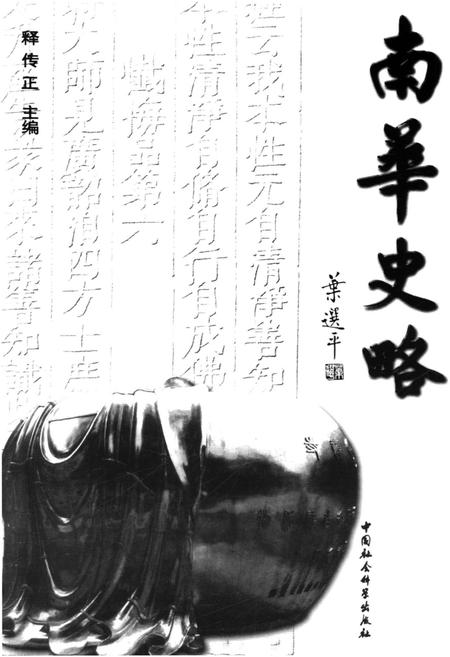 南華史略
葉選平
中国社会科学出版社
云我本性元自清淨善知
性清淨自脩自行自成佛
懺悔品第六
師見廣韶洎四方士庶
來諸善知識
释传正 主编